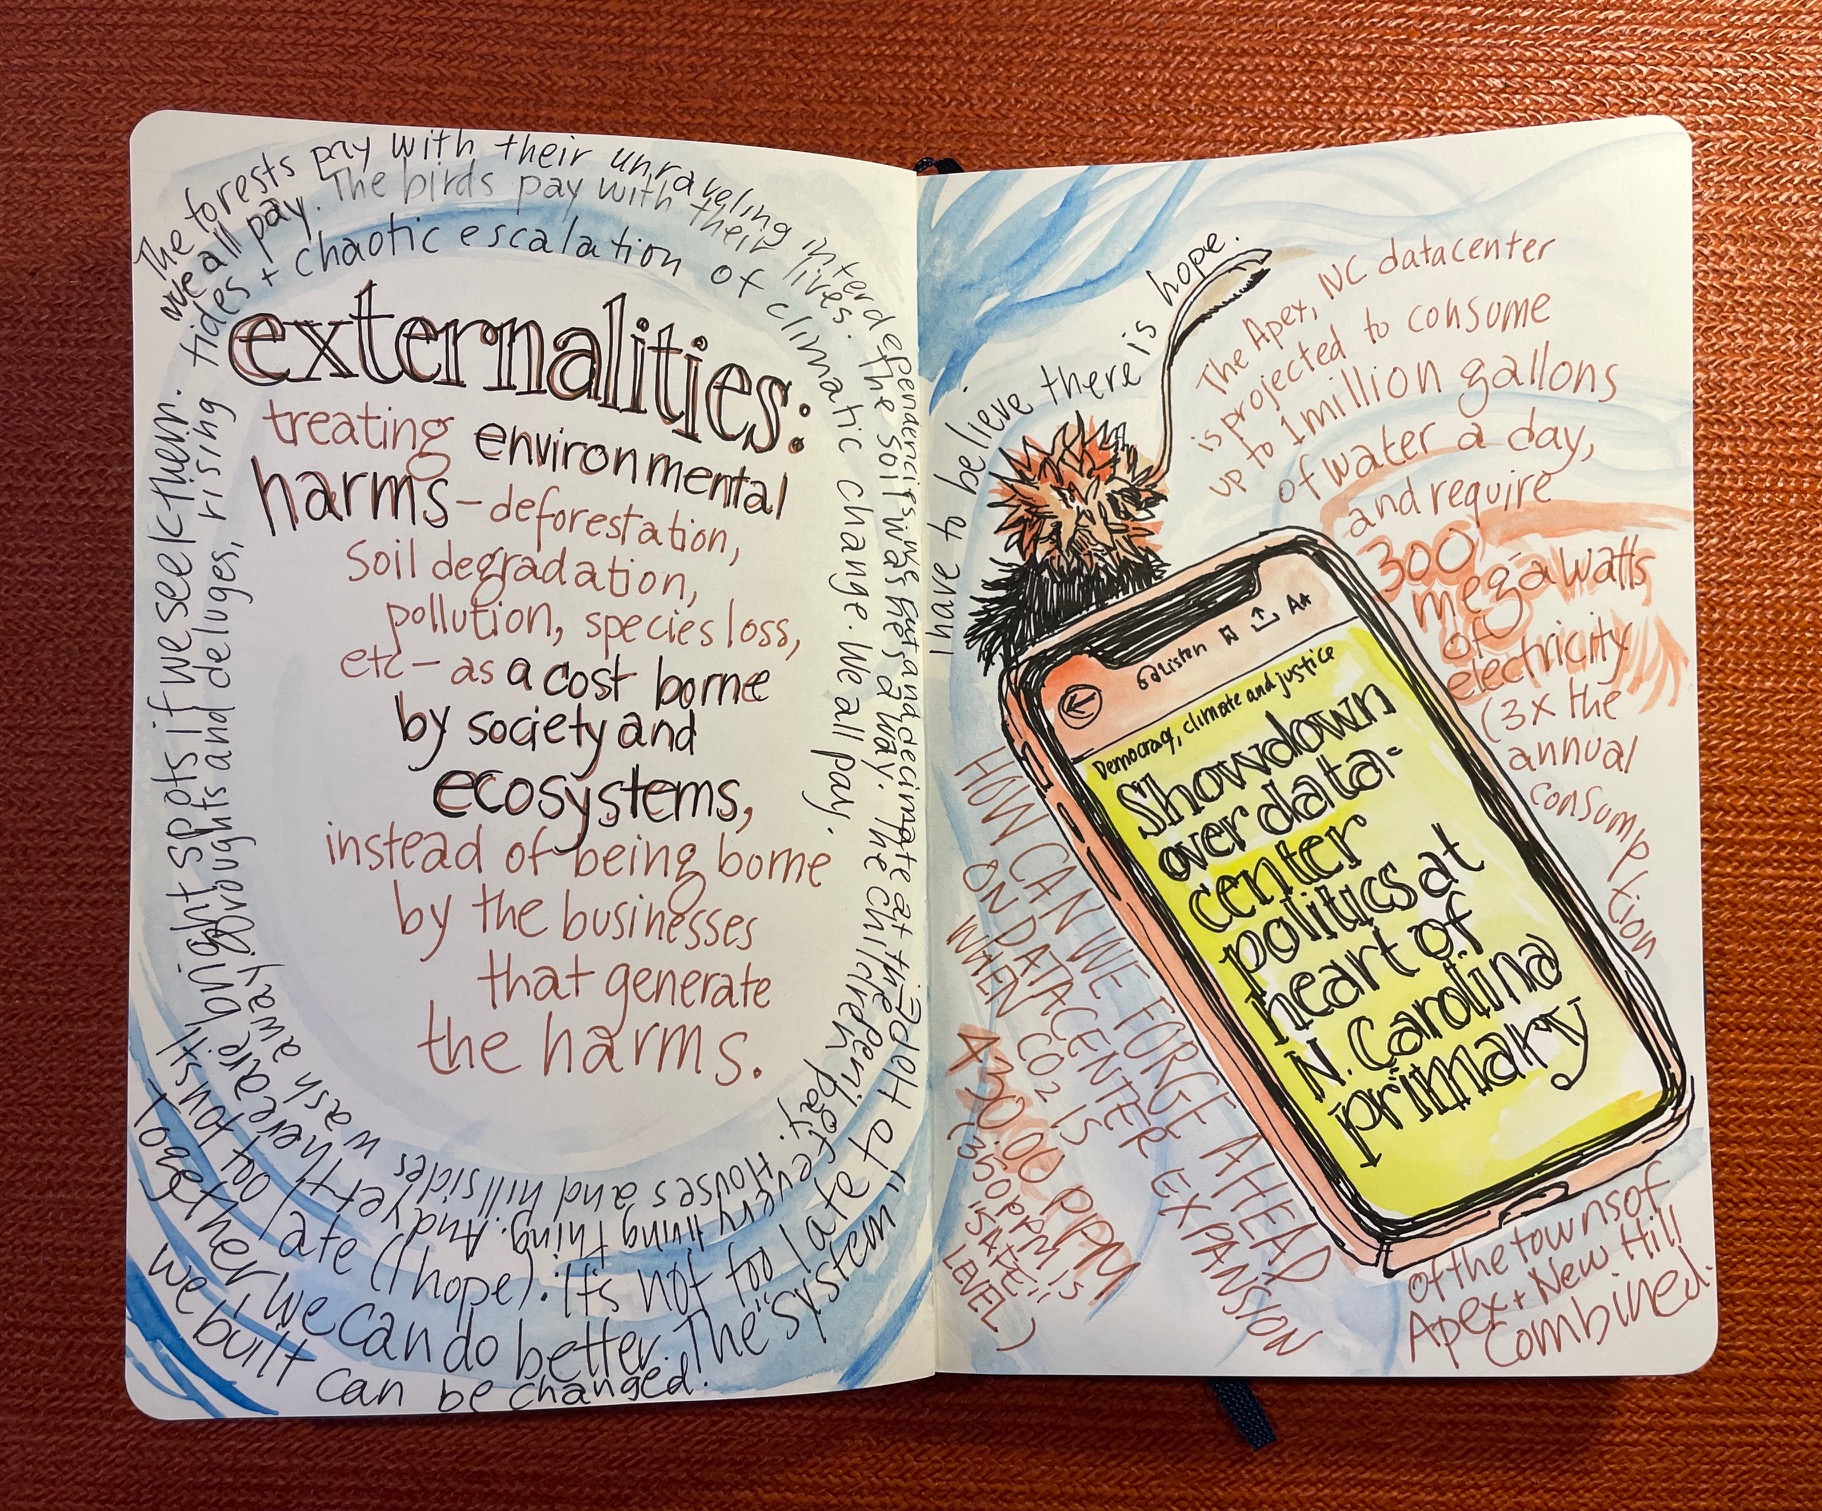 The forests pay with their unraveling interdependencies we
and decimate at the
peril of every living thing. And yet, there are bright spots if we seek them.
we all pay. The birds pay with their lives. the soil washes away. The children pay.
Houses and hillsides wash away. Droughts and deluges, rising
tides + chaotic escalation of climatic change. We all pay.
externalities:
treating environmental
harms – deforestation,
soil degradation,
pollution, species loss,
etc – as a cost borne
by society and
ecosystems,
instead of being borne
by the businesses
that generate
the harms.
It's not too late (I hope).
Together, we can do better. The "system"
we built can be changed.
I have to believe there is hope.
The Apex, NC datacenter
is projected to consume
up to 1 million gallons
of water a day,
and require
300
megawatts
of
electricity
(3x the
annual
consumption
of the towns of
Apex + New Hill
combined.
Listen
AA
Democracy, climate and justice
Showdown
over data-
center
politics at
heart of
N. Carolina
primary
HOW CAN WE FORGE AHEAD
ON DATACENTER EXPANSION
WHEN CO2 IS
430.00 PPM
(350 PPM IS
"SAFE"
LEVEL)